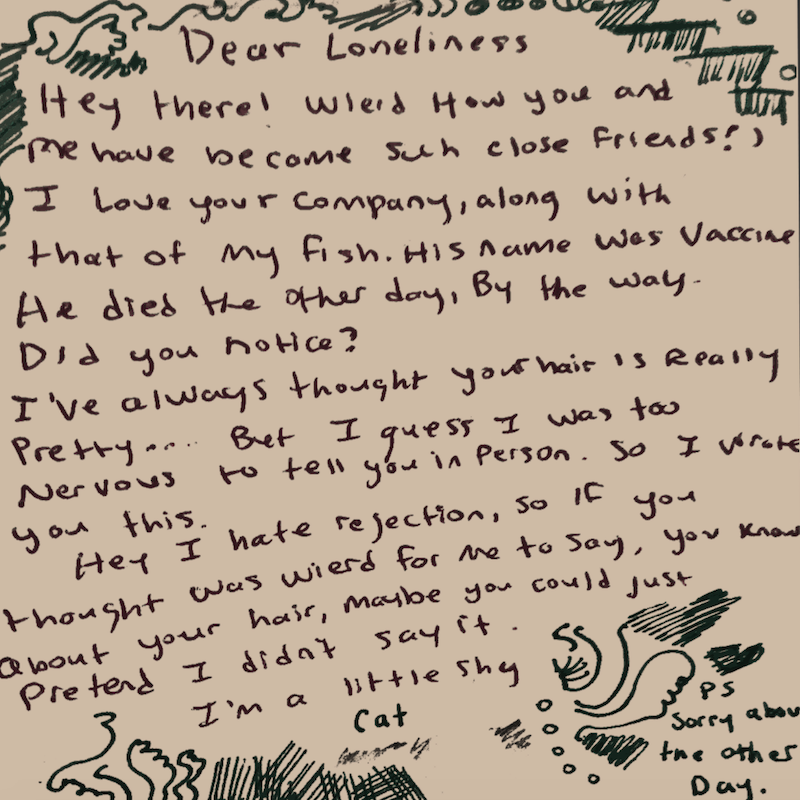 Dear Loneliness
Hey there! Wierd How you and
me have become such close friends!)
I Love your company, along with
that of my fish. His name was Vaccine
He died the other day, By the way.
Did you notice?
I've always thought your hair is Really
Pretty.... But I guess I was too
Nervous to tell you in Person. So I wrote
you this.
Hey I hate rejection, so IF you
thought was wierd for me to say, you know
about your hair, maybe you could just
Pretend I didn't say it.
I'm a little shy
Cat
PS
Sorry abou
the other
Day.